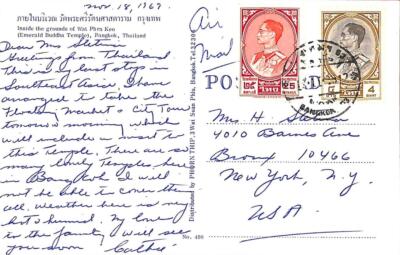 Nov. 18, 1969.
ภายในบริเวณ วัดพระศรีรัตนศาสดาราม กรุงเทพ
Inside the grounds of Wat Phra Keo
(Emerald Buddha Temple), Bangkok, Thailand
Dear Mrs
Greetings from Thailand
This is my last stop in
Southeast Asia. I have
arranged to take the
Floating Market & City Tour
tomorrow morning which
will include a visit to
this Temple. There are so
many lovely Temples here
in Bangkok I will
not be able to cover them
all. Weather here is very
hot & humid. My love
to the family will see
you soon
Distributed by PHORN THIP, 3 Wat Suan Phlu, Bangkok. Tel. 32206
No. 408
Air
Mail
PO
25
4
BANGKOK
Mrs H
4010 Barnes Ave
Bronx 10466
New York, N.Y.
USA.